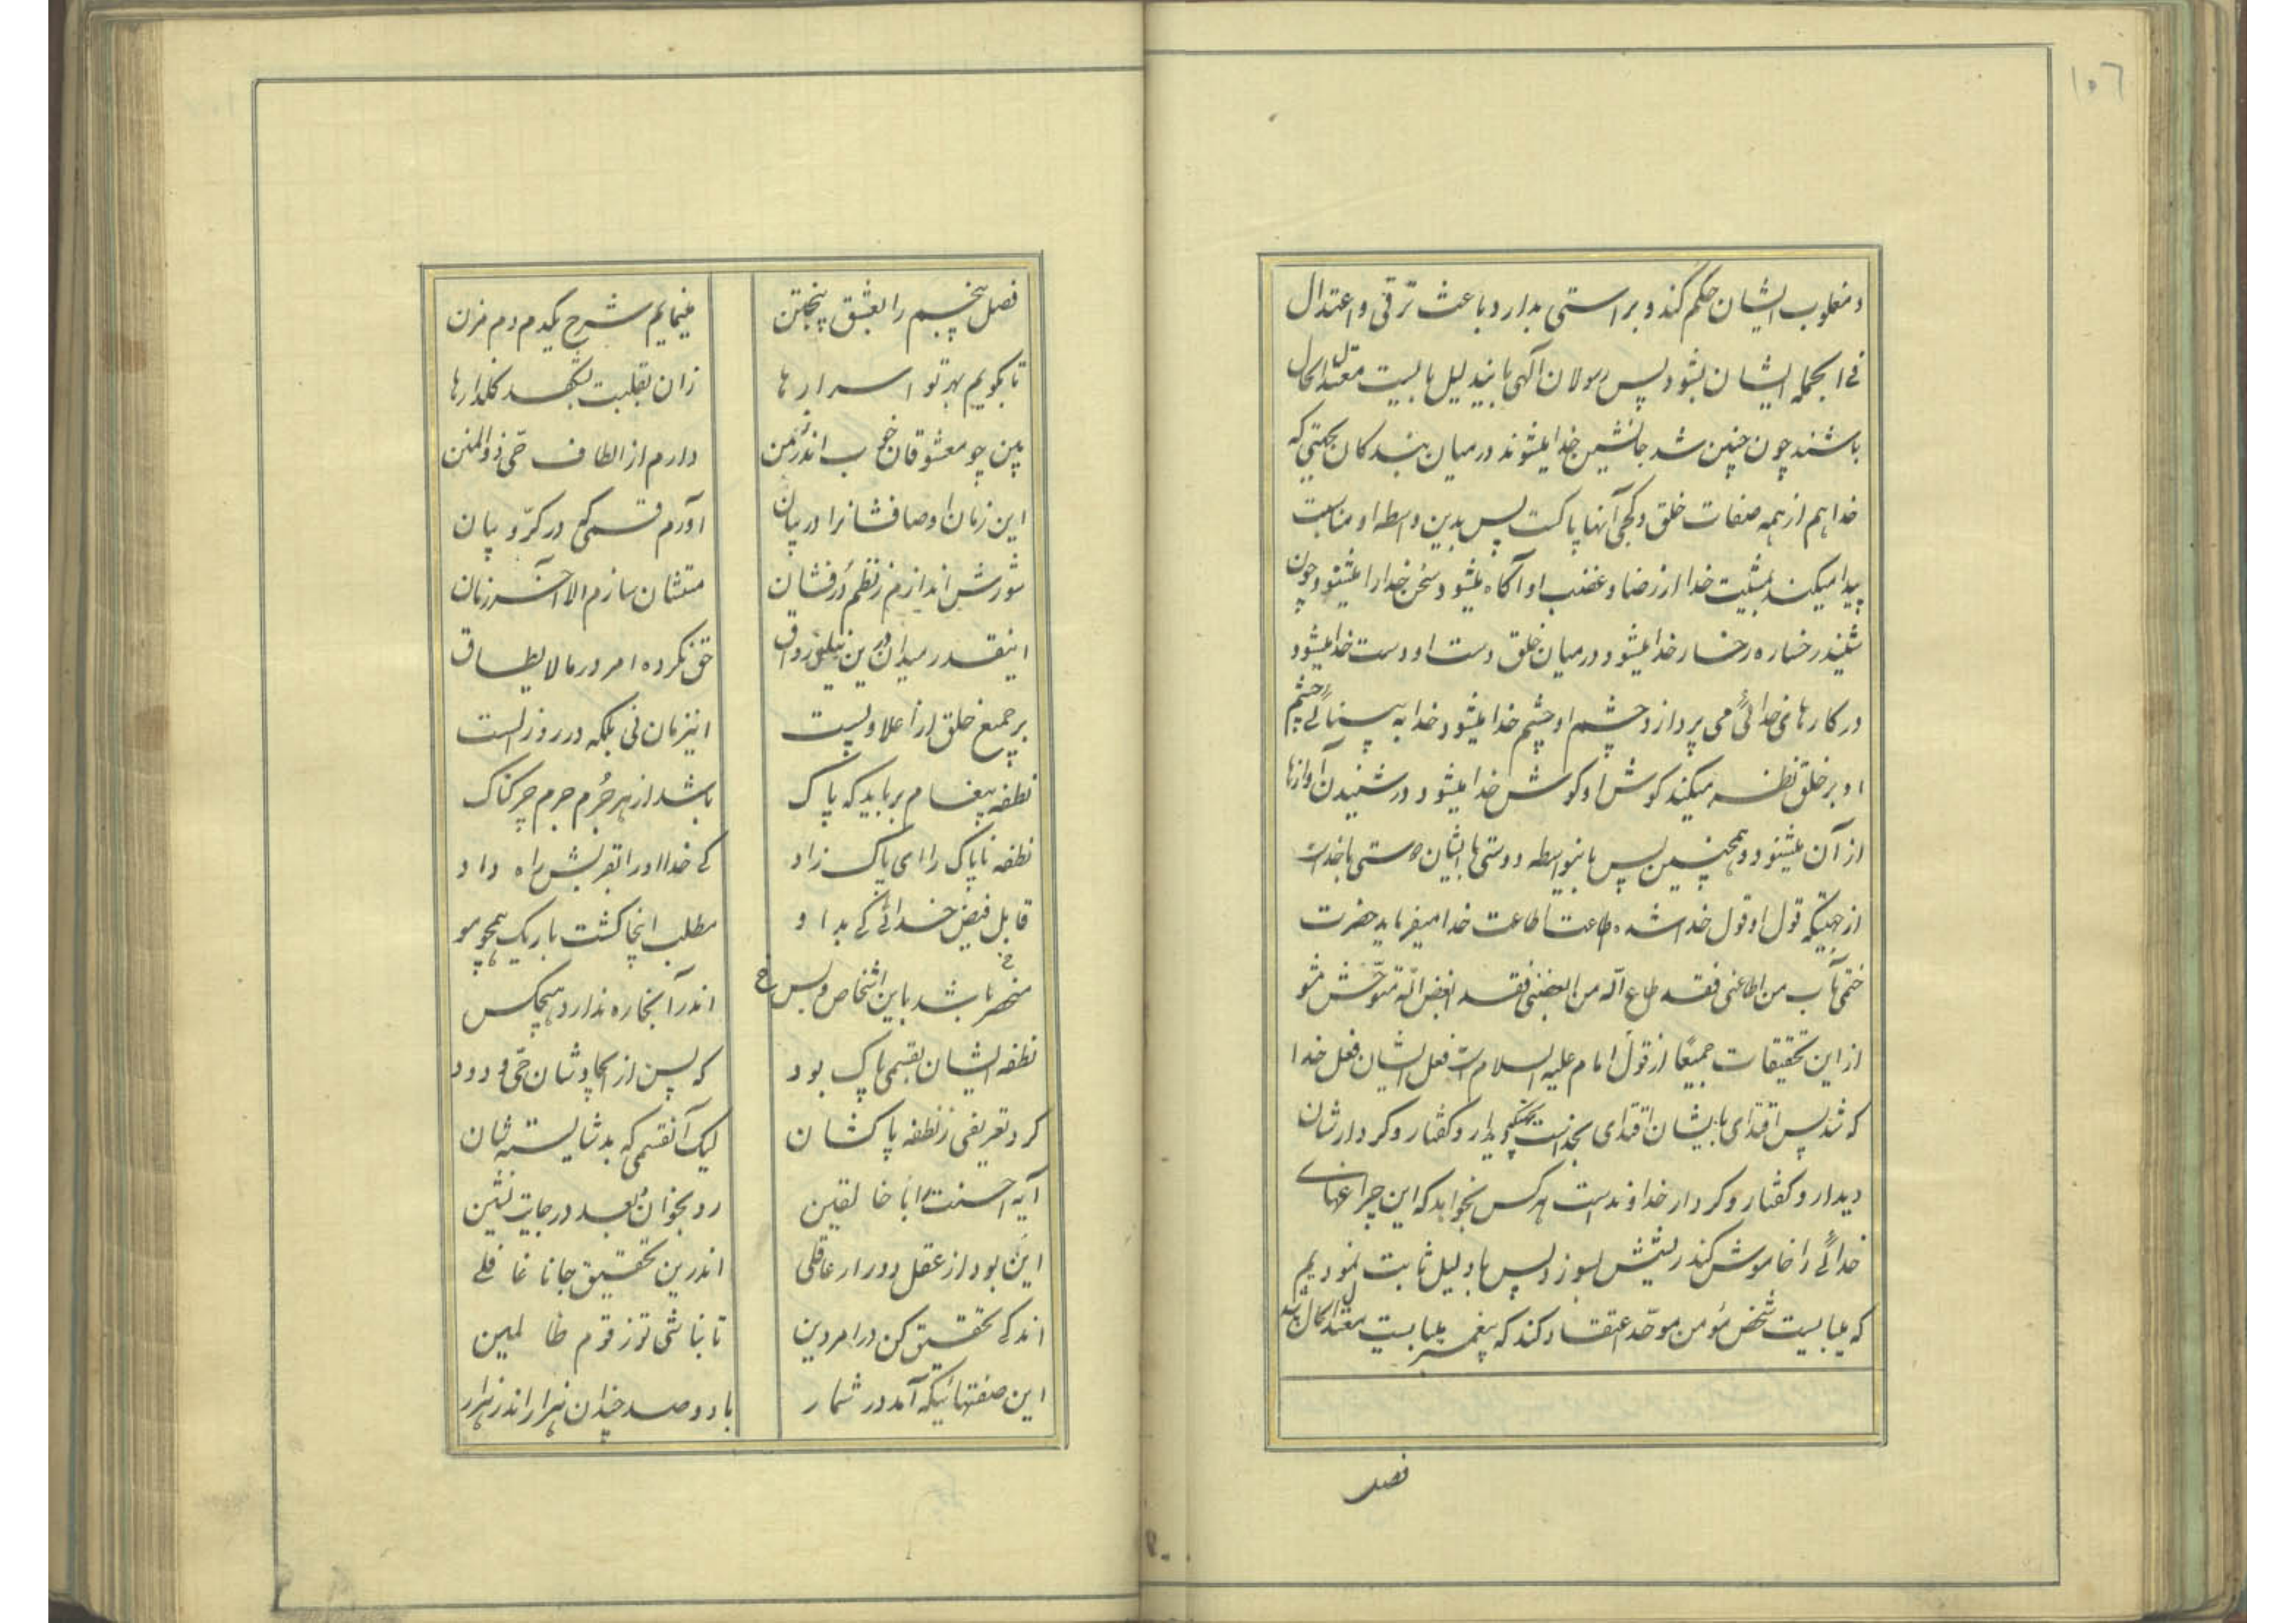 ١٠٦
و مغلوب ایشان حکم کند و براستی بدارد و باعث ترقی و اعتدال
فی الجمله ایشان بشود پس رسولان آلهی باید لیل بایست معتدل الحال
باشند چون چنین شد جانشین خدا میشوند در میان بندکان بجهتی که
خدا هم از همه صفات خلق و کجی آنها پاکست پس بدین واسطه او مناسبت
پیدا میکند بمشیت خدا از رضا و غضب او آکاه میشود و سخن خدا را میشنود و چون
شنید رخساره رخسار خدا میشود و در میان خلق دست او دست خدا میشود و
در کارهای خدائی می پردازد و چشم او چشم خدا میشود و خدا به بینائی چشم
او بر خلق نظر میکند کوش او کوش خدا میشود و در شنیدن آوازها
از آن میشنود و همچنین پس باینواسطه دوستی بایشان دوستی با خداست
از جهتیکه قول او قول خدا شده طاعت اطاعت خدا میفرماید حضرت
ختمی مآب من اطاعنی فقد طاع الله من ابغضنی فقد ابغض الله متوحش مشو
از این تحقیقات جمیعًا از قول امام علیه السلام است فعل ایشان فعل خدا
که شد پس اقتدای بایشان اقتدای بخداست دیدار و کفتار و کردارشان
دیدار و کفتار و کردار خداوند است هر کس بخواهد که این چراغهای
خدائی را خاموش کند ریشش بسوزد پس با دلیل ثابت نمودیم
که میبایست شخص مؤمن موحد اعتقاد کند که پیغمبر میبایست معتدل الحال باشد
فصل
فصل پنجم را بعشق پنجتن مینمایم شرح یکدم دم مزن
تا بکویم بهر تو اسرارها زان بقلبت بشکفد کلذارها
بین چو معشوقان خوب اندر زمن دارم از الطاف حی ذوالمنن
این زمان اوصافشانرا در بیان آورم قسمی که در کرّ و بیان
شورش اندازم ز نظم دُرفشان متشان سازم الا آخر زمان
اینقدر میدان درین نیلی رواق حق نکرده امر در ما لا یطاق
بر جمیع خلق از اعلا و پست اینزمان نی بلکه در روز الست
نطفه پیغام بر باید که پاک باشد از هر جُرم جرم چرکناک
نطفه ناپاک را ای پاک زاد کی خدا او را بقربش راه داد
قابل فیض خدائی کی بد او مطلب اینجا کشت باریک همچو مو
منحصر باشد باین اشخاص و بس اندر آنجا ره ندارد هیچکس
نطفه ایشان بقسمی پاک بود که پس از ایجادشان حیّ ودود
کرد تعریفی ز نطفه پاکشان لیک آنقسمی که بد شایسته شان
آیه احسنت انا خالقین رو بخوان بعد در جایت نشین
این بود از عقل دور ار عاقلی اندرین تحقیق جانا غافلی
اندکی تحقیق کن در امر دین تا نباشی تو ز قوم ظالمین
این صفتهائیکه آمد در شمار با دو صد چندان هزار اندر هزار